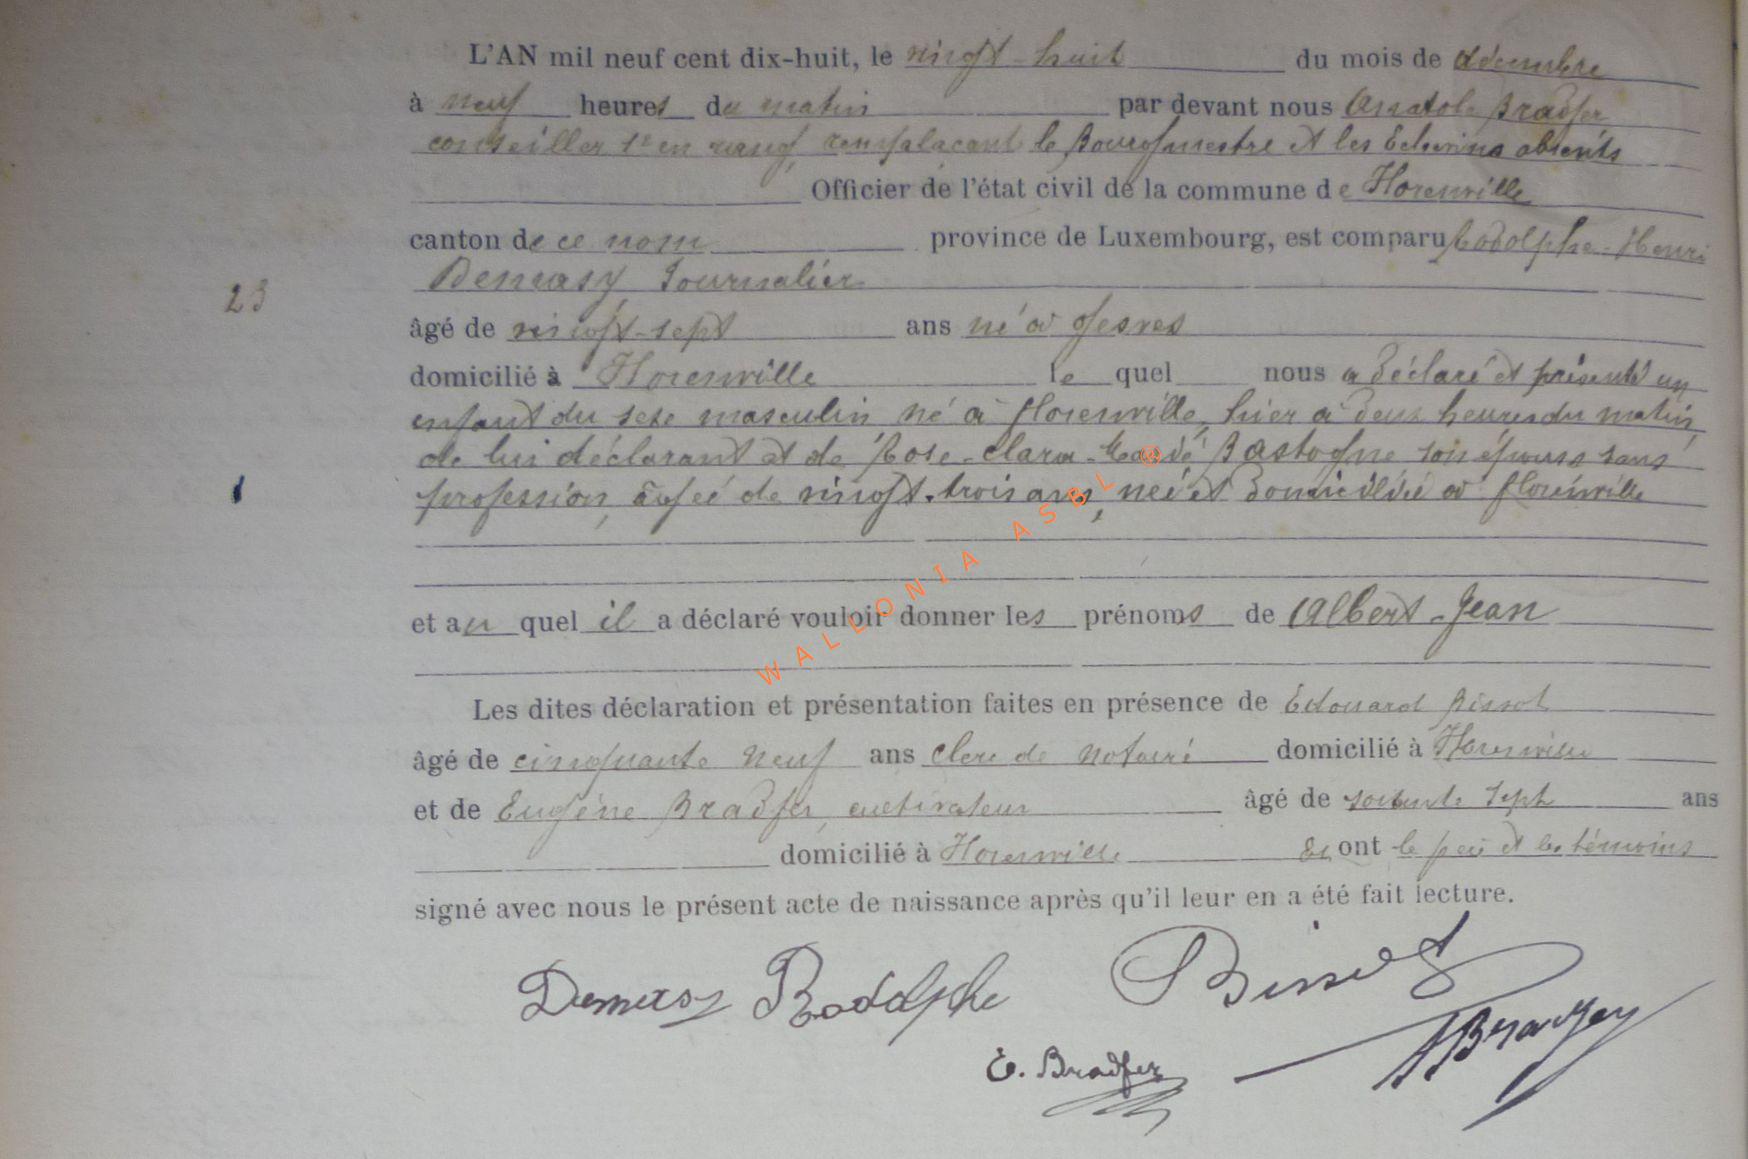 L'AN mil neuf cent dix-huit, le vingt-huit du mois de décembre
à neuf heures du matin par devant nous Anatole Bradfer
conseiller 1er en rang, remplaçant le Bourgmestre et les Echevins absents
Officier de l'état civil de la commune de Florenville
canton de ce nom province de Luxembourg, est comparu Rodolphe-Henri
Demasy Journalier
23
âgé de vingt-sept ans né à Jesves
domicilié à Florenville lequel nous a déclaré et présenté un
enfant du sexe masculin né à Florenville, hier à deux heures du matin,
de lui déclarant et de Rose-Clara Bastogne son épouse sans
1
profession, âgée de vingt-trois ans, née et domiciliée à Florenville
et au quel il a déclaré vouloir donner les prénoms de Albert-Jean
WALLONIA ASBL ®
Les dites déclaration et présentation faites en présence de Edouard Bissot
âgé de cinquante neuf ans clerc de notaire domicilié à Florenville
et de Eugène Bradfer, cultivateur âgé de soixante sept ans
domicilié à Florenville et ont le père et les témoins
signé avec nous le présent acte de naissance après qu'il leur en a été fait lecture.
Demasy Rodolphe Bissot
E. Bradfer ABradfer